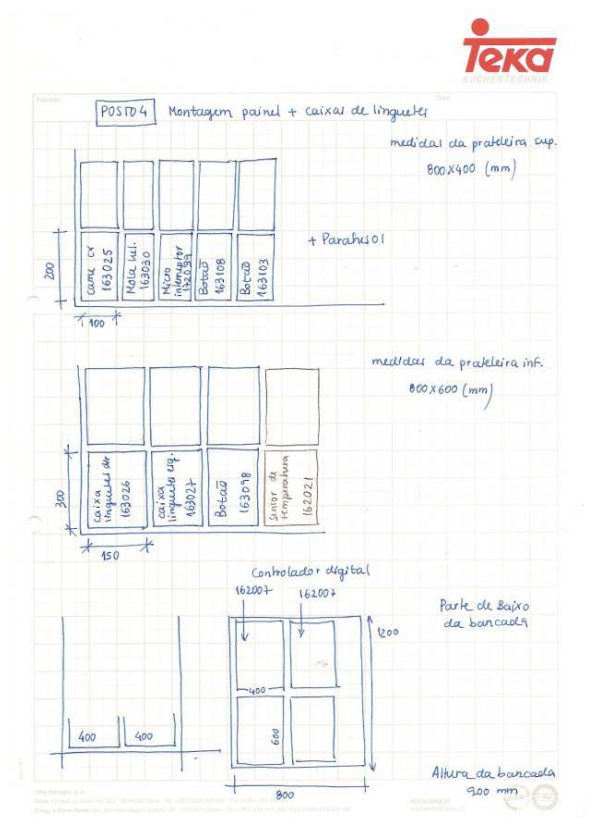 Teka
KÜCHENTECHNIK
POSTO 4 Montagem painel + caixas de linguetes
medidas da prateleira sup.
800X400 (mm)
+ Parafusos
200
came cx
163025
Mola hel.
163030
Micro
interruptor
172039
Botão
163108
Botão
163103
100
medidas da prateleira inf.
800X600 (mm)
300
caixa
linguetes dir
163026
caixa
linguetes esq.
163027
Botão
163098
sensor de
temperatura
162021
150
Controlador digital
162007
162007
Parte de Baixo
da bancada
1200
400
400
400
600
800
Altura da bancada
900 mm